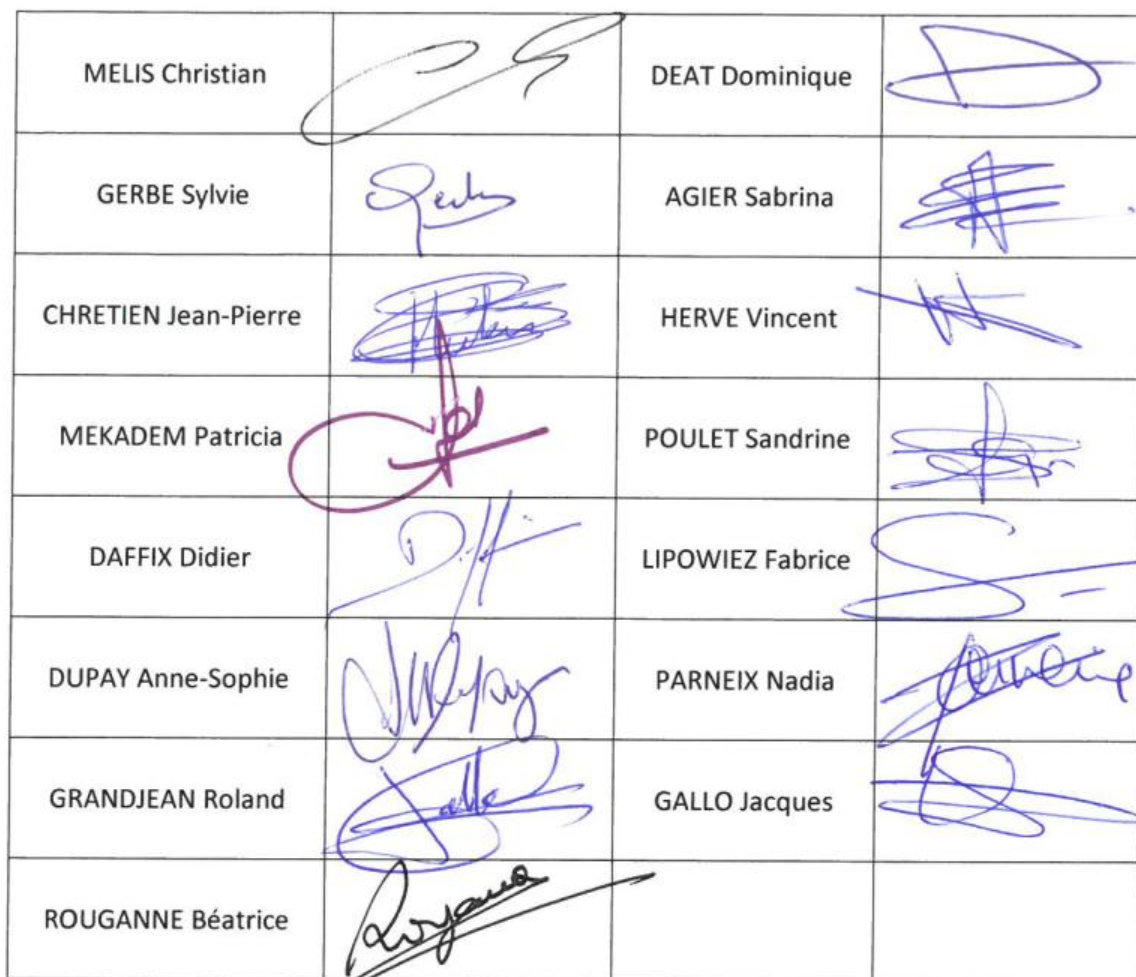 MELIS Christian
DEAT Dominique
GERBE Sylvie
AGIER Sabrina
CHRETIEN Jean-Pierre
HERVE Vincent
MEKADEM Patricia
POULET Sandrine
DAFFIX Didier
LIPOWIEZ Fabrice
DUPAY Anne-Sophie
PARNEIX Nadia
GRANDJEAN Roland
GALLO Jacques
ROUGANNE Béatrice